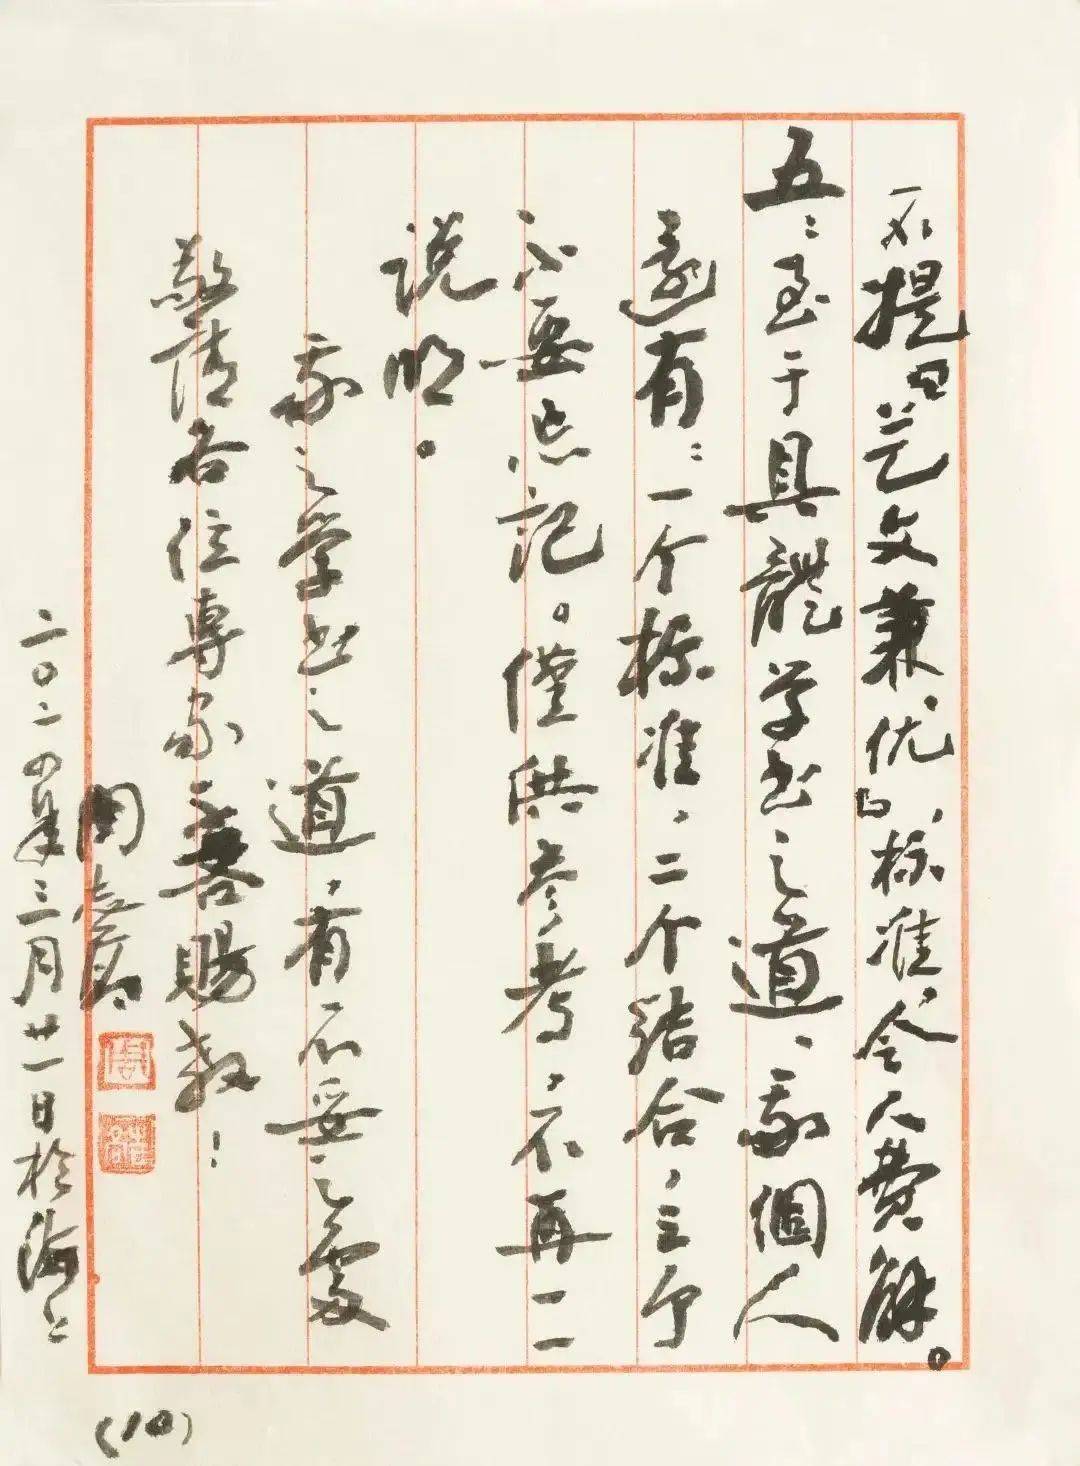 不提「艺文兼优」标准，令人费解。
五：至于具體学书之道、我個人
還有：一个标准，二个结合，三个
不要忘记。僅供参考，不再一一
说明。
我之学书之道，有不妥之處
敬请各位專家不吝赐教！
周志高
二〇二四年三月廿一日於海上
(10)